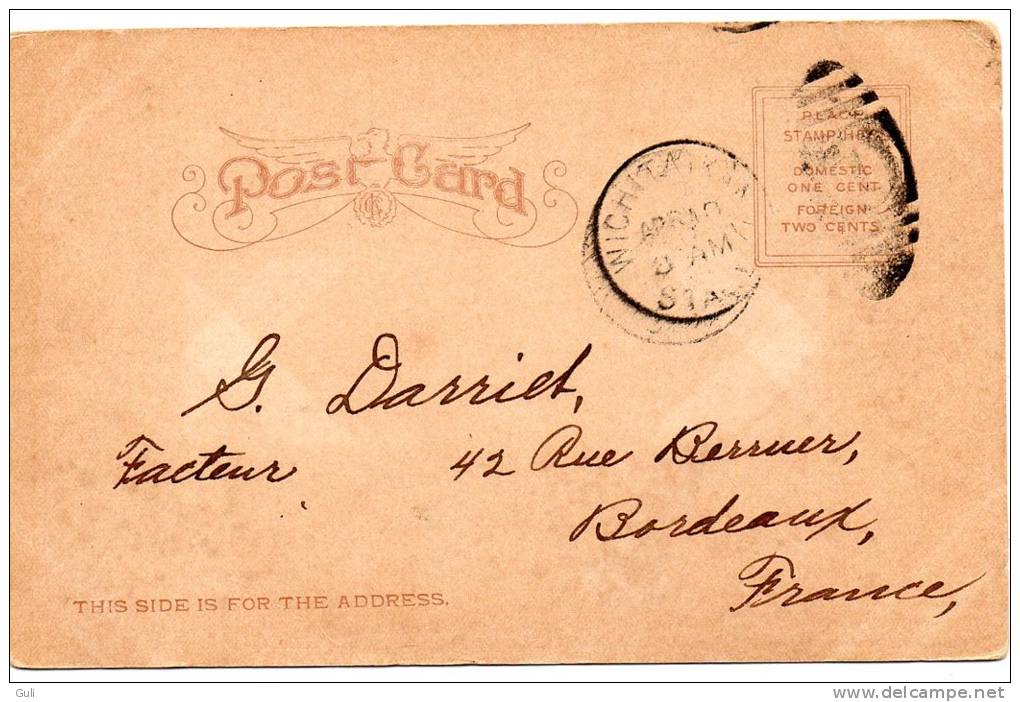 Post Card
WICHITA, KAN
APR 10
8 AM
STA
PLACE
STAMP HERE
DOMESTIC
ONE CENT
FOREIGN
TWO CENTS
G. Darriet,
Facteur 42 Rue Berruer,
Bordeaux,
France,
THIS SIDE IS FOR THE ADDRESS.
Guli
www.delcampe.net